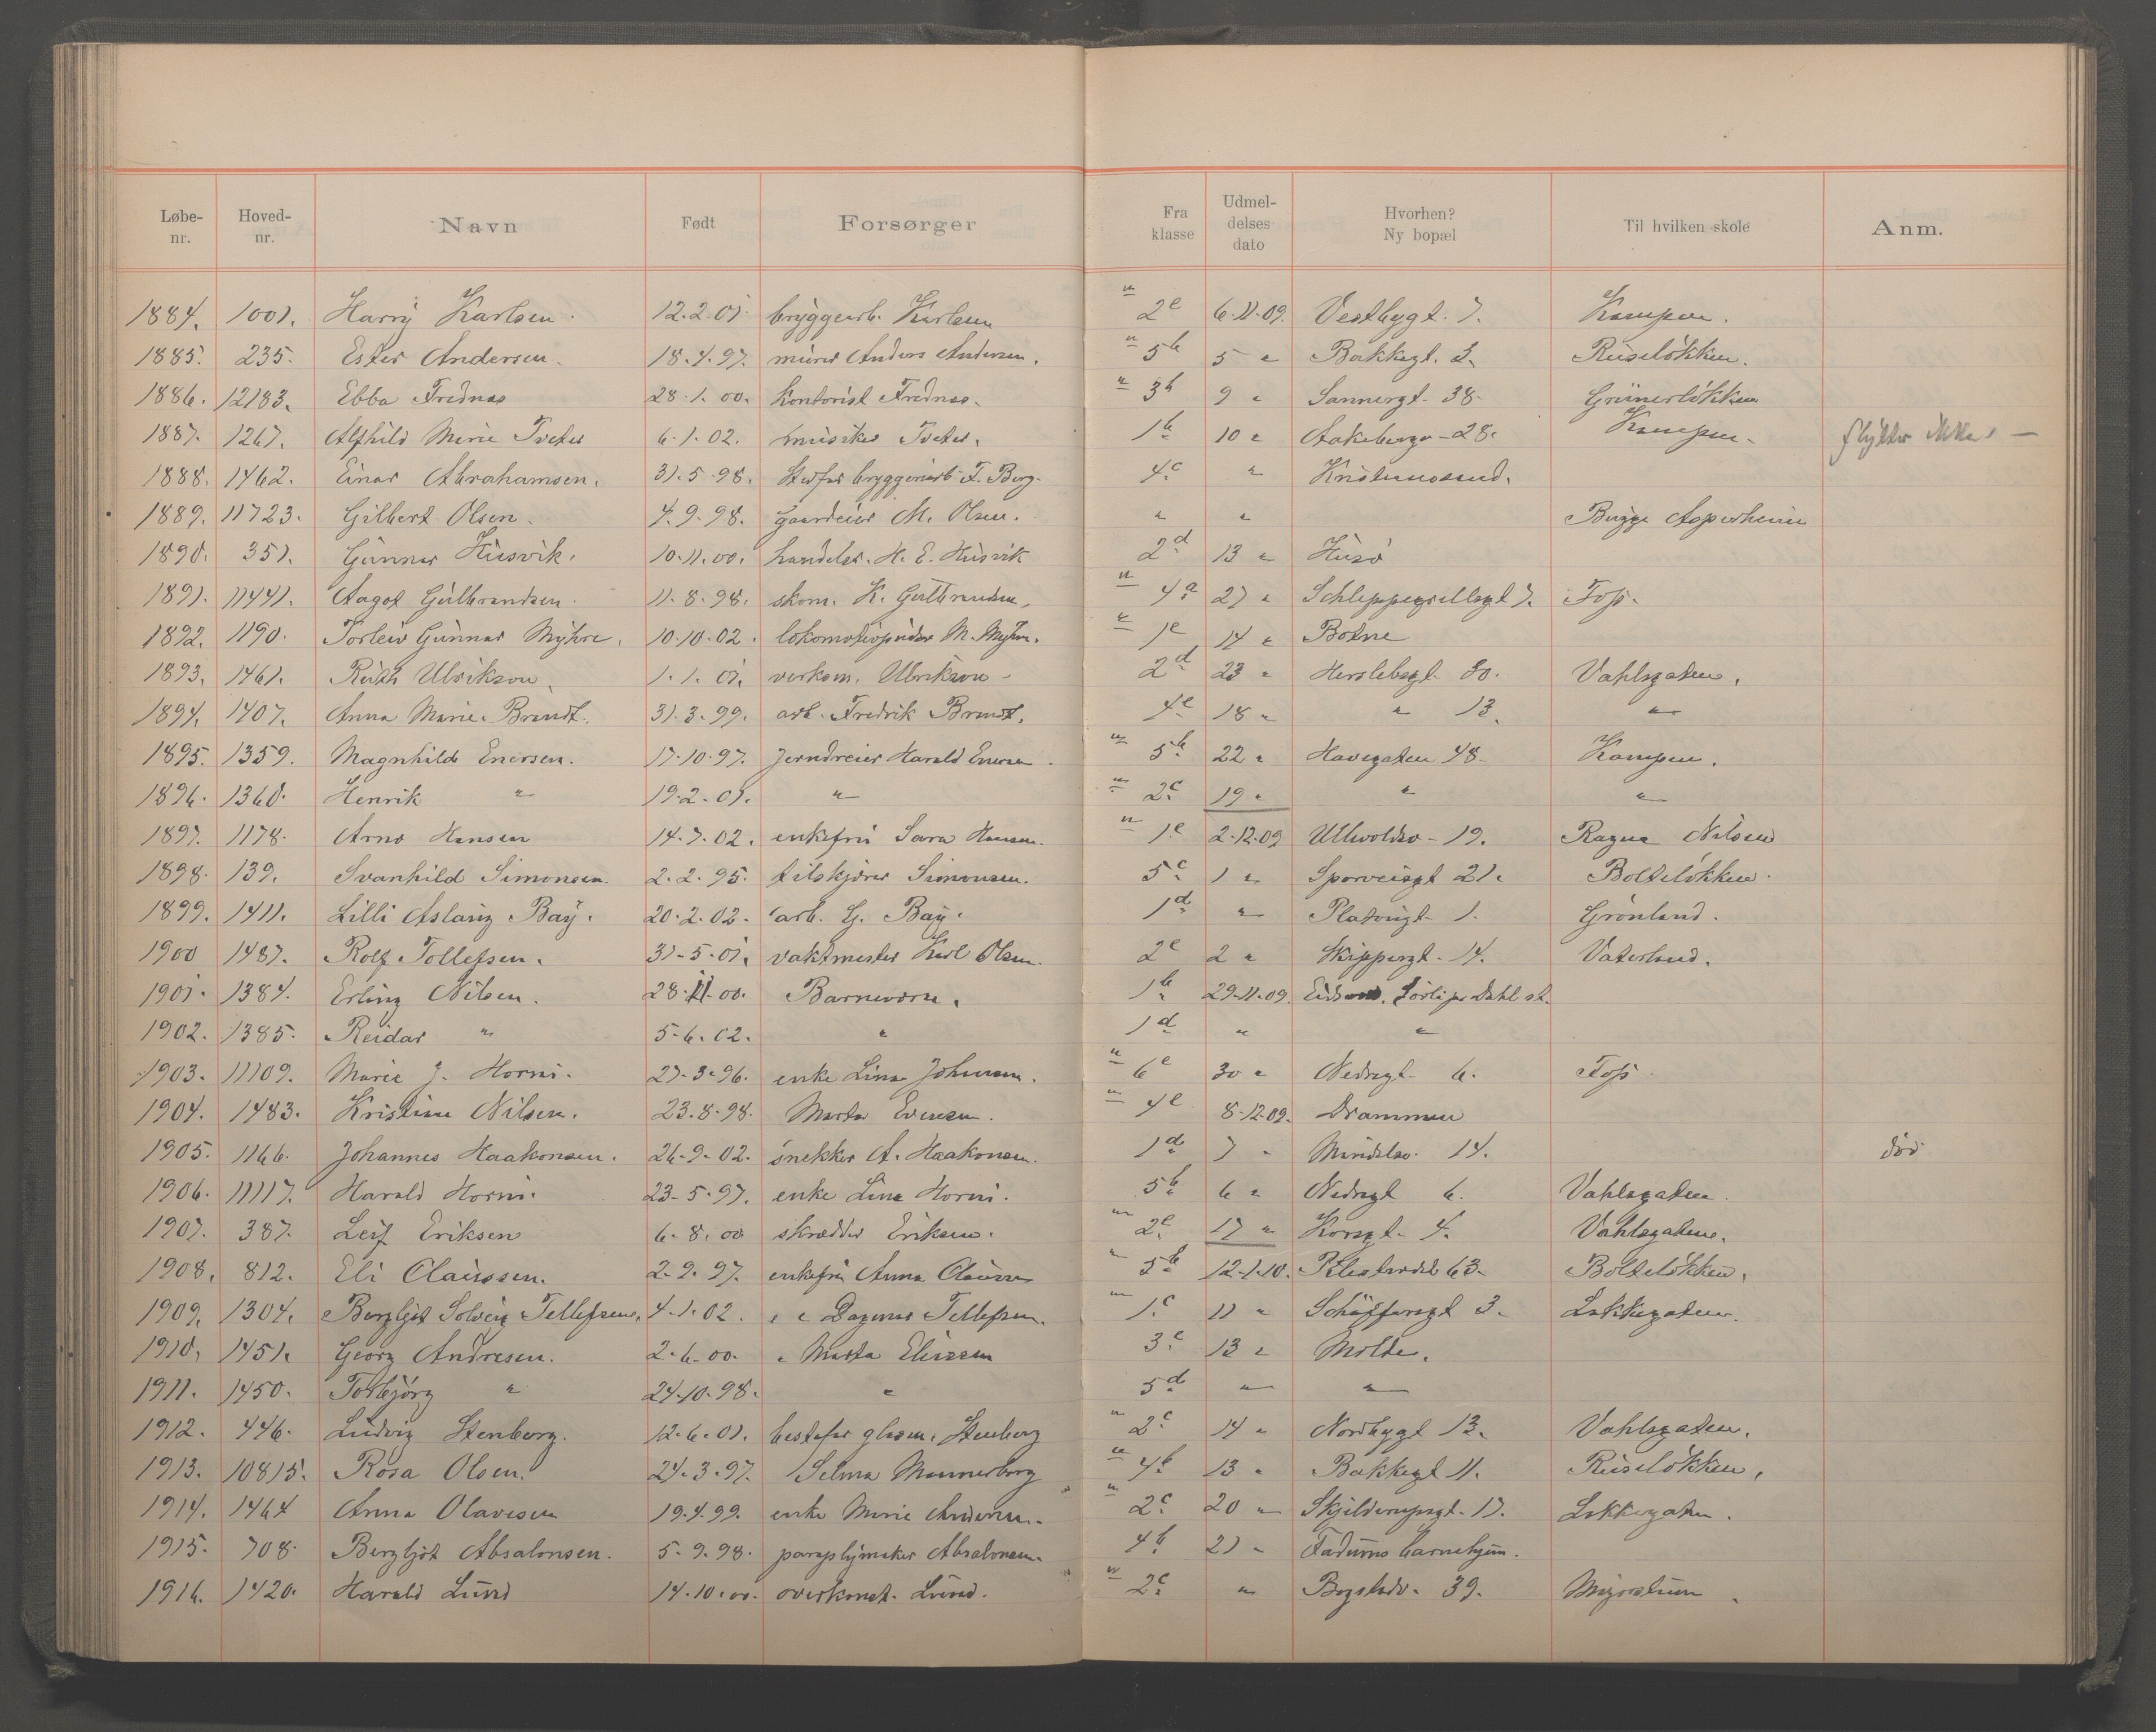 Løbe-nr. Hoved-nr. Navn Født Forsørger Fra klasse Udmel-delses dato Hvorhen? Ny bopæl Til hvilken skole Anm.
1884. 1001. Harry Karlsen. 12.2.01. bryggearb. Karlsen " 2e 6-11-09. Vestbygt. 7. Kampen.
1885. 235. Ester Andersen. 18.4.97. murer Anders Andersen. " 5b 5 " Bakkegt. 3. Ruseløkken.
1886. 12183. Ebba Frednas 28.1.00. Kontorist Frednas. " 3b 9 " Sannergt. 38. Grünerløkken
1887. 1267. Alfhild Marie Tveter 6.1.02. musiker Tveter. 1b 10 " Aakebergv. 28. Kampen. flytter ikke. —
1888. 1462. Einar Abrahamsen. 31.5.98. Stedfar bryggeriarb. F. Berg. 4c " Kristianssund.
1889. 11723. Gilbert Olsen. 4.9.98. gaardeier M. Olsen. " " Bugge Asperheim
1890. 351. Gunnar Husvik. 10.11.00. handelsr. H. E. Husvik 2d 13 " Husö
1891. 11441. Aagot Gulbrandsen. 11.8.98. skom. K. Gulbrandsen. " 4a 27 " Schleppegrellsgt 7. Foss.
1892. 1190. Torleiv Gunnar Myhre. 10.10.02. lokomotivpudser M. Myhre. " 1e 14 " Botne
1893. 1461. Ruth Ulrikson. 1.1.01. verksm. Ulrikson 2d 23 " Herslebsgt. 30. Vahlsgaten.
1894. 1407. Anna Marie Brandt. 31.3.99. arb. Fredrik Brandt. 4e 18 " " 13. "
1895. 1359. Magnhild Enersen. 17.10.97. Jerndreier Harald Enersen. " 5b 22 " Havegaten 48. Kampen.
1896. 1360. Henrik " 19.2.01. " " 2c 19 " " "
1897. 1178. Arne Hansen 14.7.02. enkefru Sara Hansen. " 1e 2-12-09 Ullevoldsv. 19. Ragna Nilsens
1898. 139. Svanhild Simonsen. 2.2.95. tilskjærer Simonsen. 5c 1 " Sporveisgt 21. Bolteløkken.
1899. 1411. Lilli Aslaug Bay. 20.2.02. arb. G. Bay. 1d " Platousgt. 1. Grønland.
1900 1487. Rolf Tollefsen. 31-5-01. vaktmester Karl Olsen. 2e 2 " Skippergt. 14. Vaterland.
1901. 1384. Erling Nilsen. 28.11.00. Barnevern. 1b 29-11-09. Eidsvold. Sørli pr Dahl st.
1902. 1385. Reidar " 5-6.02. " 1d " "
1903. 11109. Marie J. Horni. 27-3-96. enke Lina Johnsen. " 6e 30 " Nedregt. 6. Foss.
1904. 1483. Kristine Nilsen. 23.8.98. Marta Evensen. " 4e 8-12-09. Drammen
1905. 1166. Johannes Haakonsen. 26-9-02. snekker A. Haakonsen. 1d 7 " Maridalsv. 14. död
1906. 11117. Harald Horni. 23-5-97. enke Lina Horni. 5b 6 " Nedregt 6. Vahlsgaten.
1907. 387. Leif Eriksen 6.8.00 skrædder Eriksen. " 2e 17 " Korsgt. 4. Vahlsgaten.
1908. 812. Eli Claussen. 2.9.97. enkefru Anna Claussen " 5b 12-1-10. Pilestrædet 63. Bolteløkken.
1909. 1304. Bergljot Solveig Tellefsen. 4-1-02. " " Dagmar Tellefsen. " 1c 11 " Schäffersgt 3. Lakkegaten.
1910. 1451. Georg Andresen. 2-6-00. " Marta Eliassen 3c 13 " Molde.
1911. 1450. Torbjørg " 24.10.98. " 5d " "
1912. 446. Ludvig Stenberg. 12.6.01. bestefar glasm. Stenberg " 2c 14 " Nordbygt 13. Vahlsgaten.
1913. 10815. Rosa Olsen. 24.3.97. Selma Mannerborg " 4b 13 " Bakkegt 11. Ruseløkken.
1914. 1464 Anna Olavesen 19.4.99. enke Marie Andersen. " 2c 20 " Skjelderupsgt. 17. Lakkegaten.
1915. 708. Bergljot Absalonsen. 5.9.98. paraplymaker Absalonsen. 4b 21 " Fadums barnehjem.
1916. 1420. Harald Lund 14.10.00. overkonst. Lund. " 2c " Bogstadv. 39. Majorstuen.